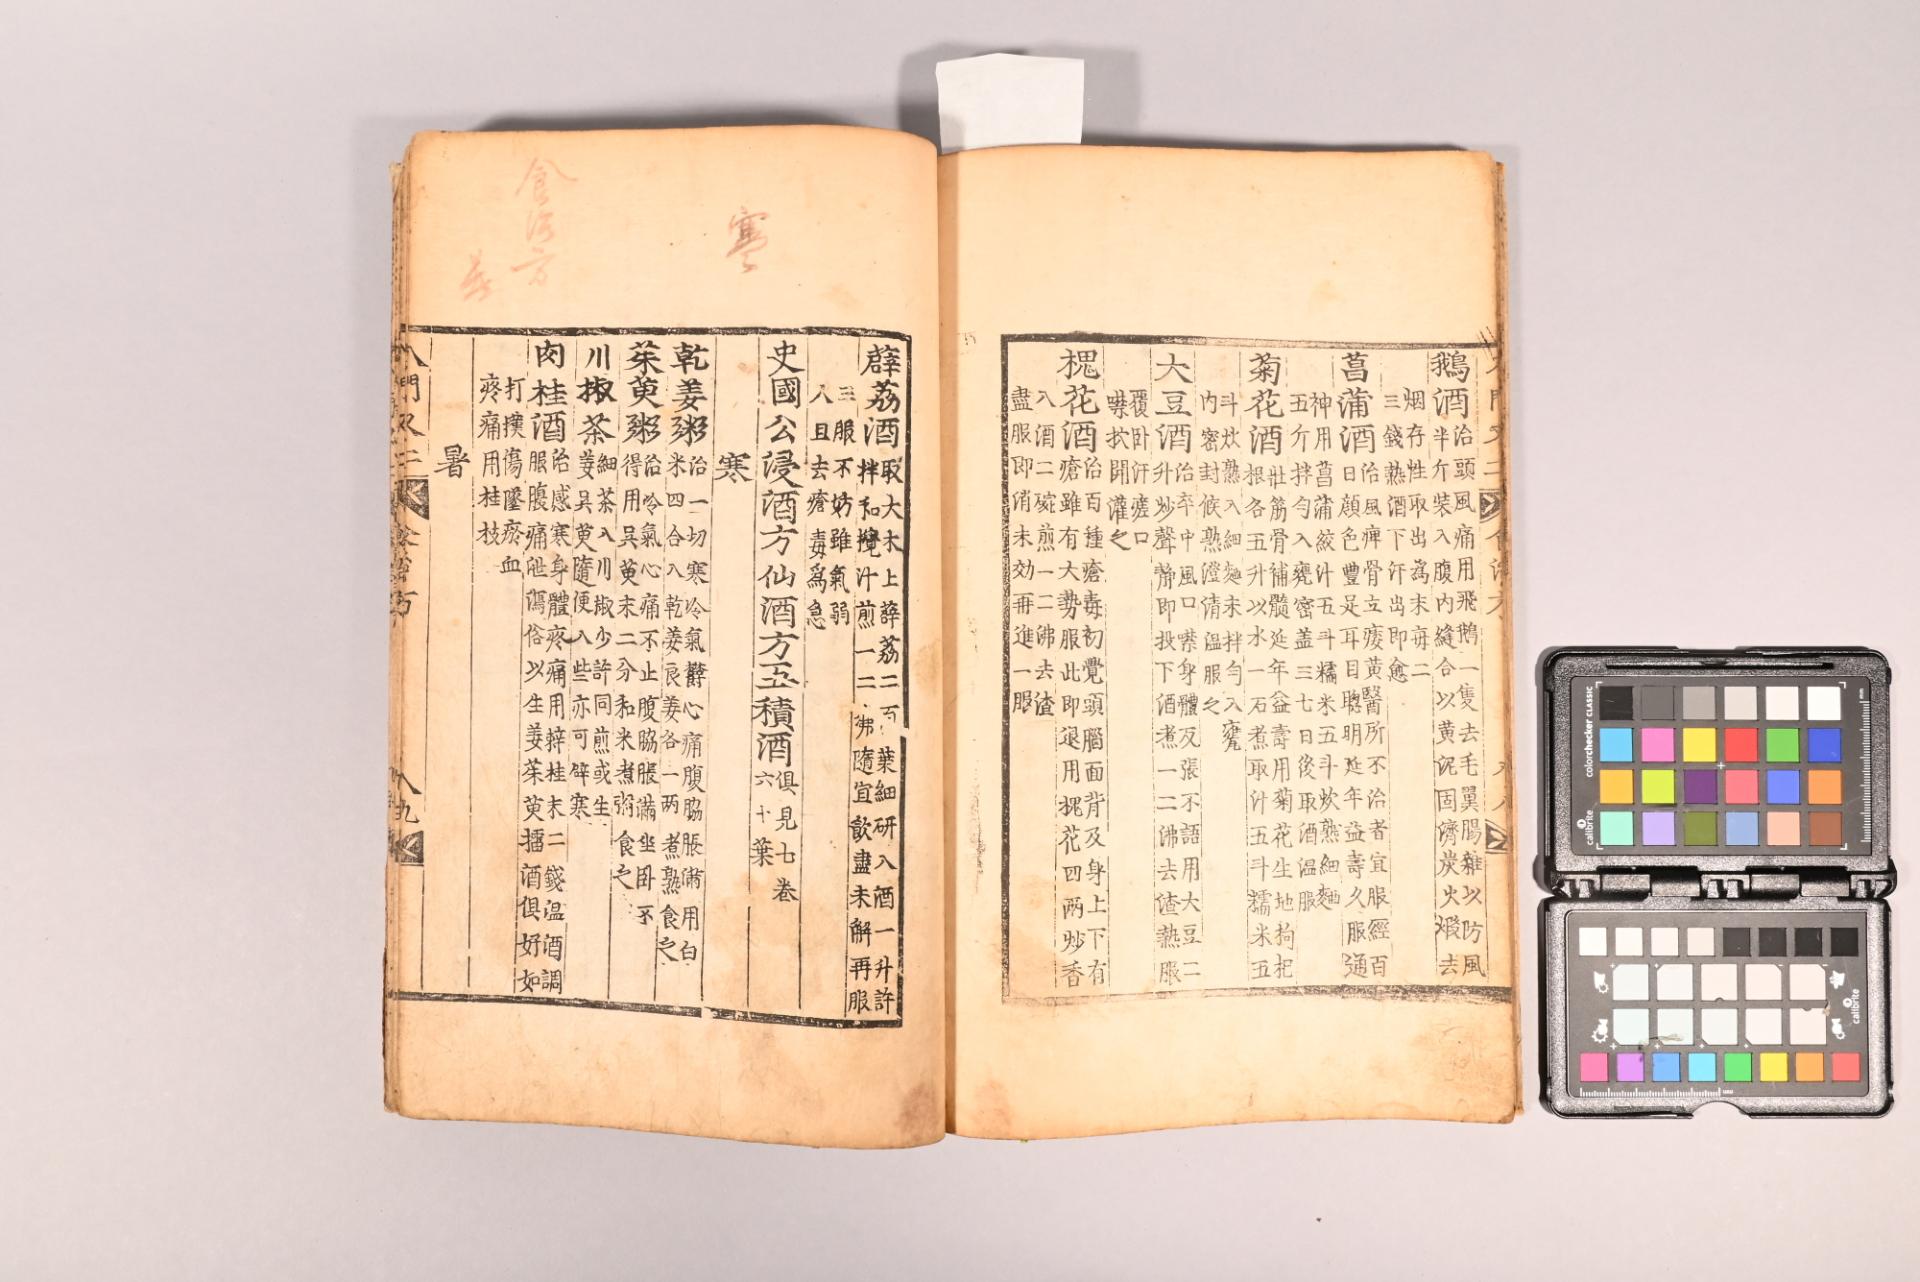 鵝酒治頭風痛用飛鵝一隻去毛翼腸雜以防風
半斤裝入腹內縫合以黄泥固濟炭火煅去
烟存性取出爲末每二
三錢熱酒下汗出即愈
菖蒲酒治風痺骨立痿黄醫所不治者宜服經百
日顔色豐足耳目聰明延年益壽久服通
神用菖蒲絞汁五斗糯米五斗炊熟細麵
五斤拌勻入甕密盖三七日後取酒温服
菊花酒壯筋骨補髓延年益壽用菊花生地枸杞
根各五升以水一石煮取汁五斗糯米五
斗炊熟入細麵末拌勻入甕
内密封候熟澄清温服之
大豆酒治卒中風口噤身體反張不語用大豆二
升炒聲靜即投下酒煮一二沸去渣熱服
覆卧汗瘥口
噤抉開灌之
槐花酒治百種瘡毒初覺頭腦面背及身上下有
瘡雖有大勢服此即退用槐花四兩炒香
入酒二碗煎一二沸去渣
盡服即消未効再進一服
薜荔酒取大木上薜荔二百葉細研入酒一升許
拌和攪汁煎一二沸隨宜飮盡未解再服
三服不妨雖氣弱
人且去瘡毒爲急
史國公浸酒方仙酒方五積酒俱見七卷
六十葉
寒
乾姜粥治一切寒冷氣欝心痛腹脇脹滿用白
米四合入乾姜良姜各一两煮熟食之
茱萸粥治冷氣心痛不止腹脇脹滿坐卧不
得用吳萸末二分和米煮粥食之
川椒茶細茶入川椒少許同煎或生
姜吳萸隨便入些亦可辟寒
肉桂酒治感寒身體疼痛用辣桂末二錢温酒調
服腹痛泄瀉俗以生姜茱萸擂酒俱好如
打撲傷墜瘀血
疼痛用桂枝
暑
食治方
寒
入門又二
食治方
八九